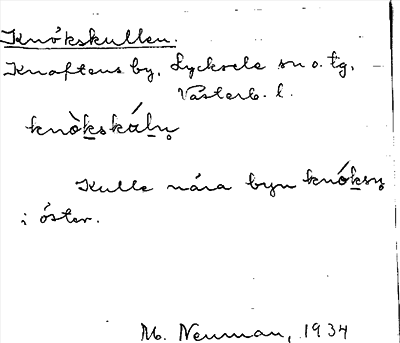 Knókskullen.
Knaftens by, Lycksele sn o. tg,
Västerb. l.
knòkskálņ
Kulle nára byn knóksņ
i öster.
M. Neuman, 1934